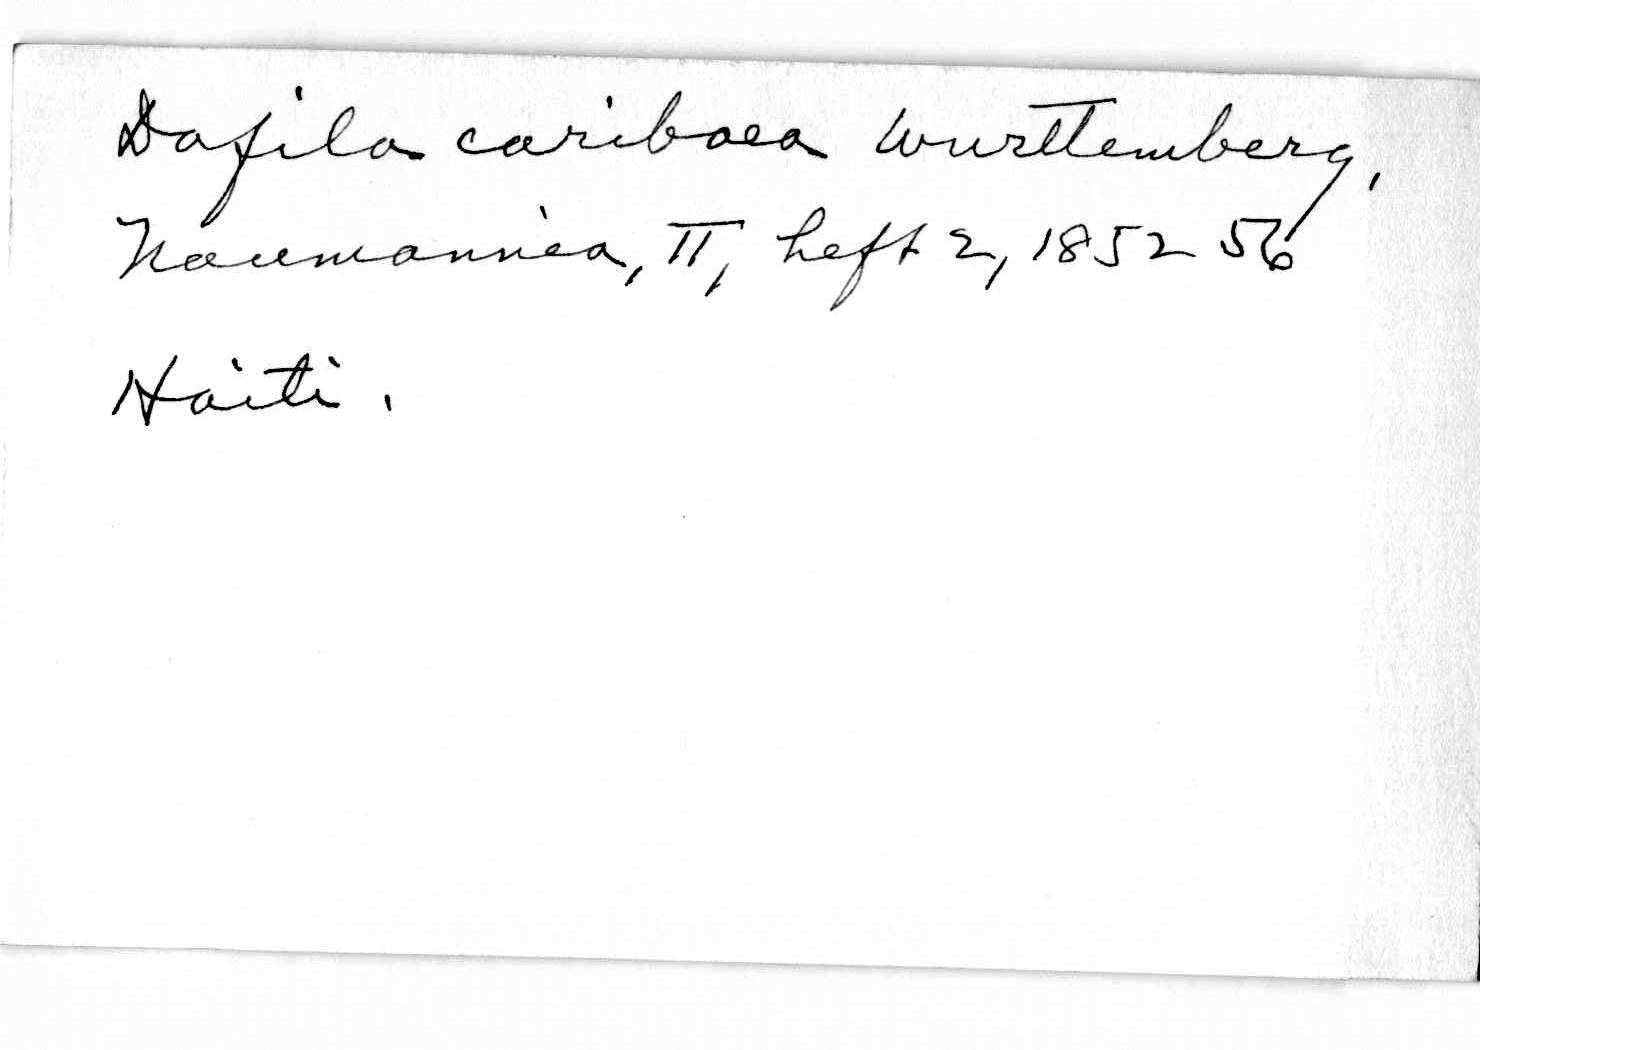 Dafila caribaea Wurttemberg,
Naumannia, II, heft 2, 1852 56
Haiti.